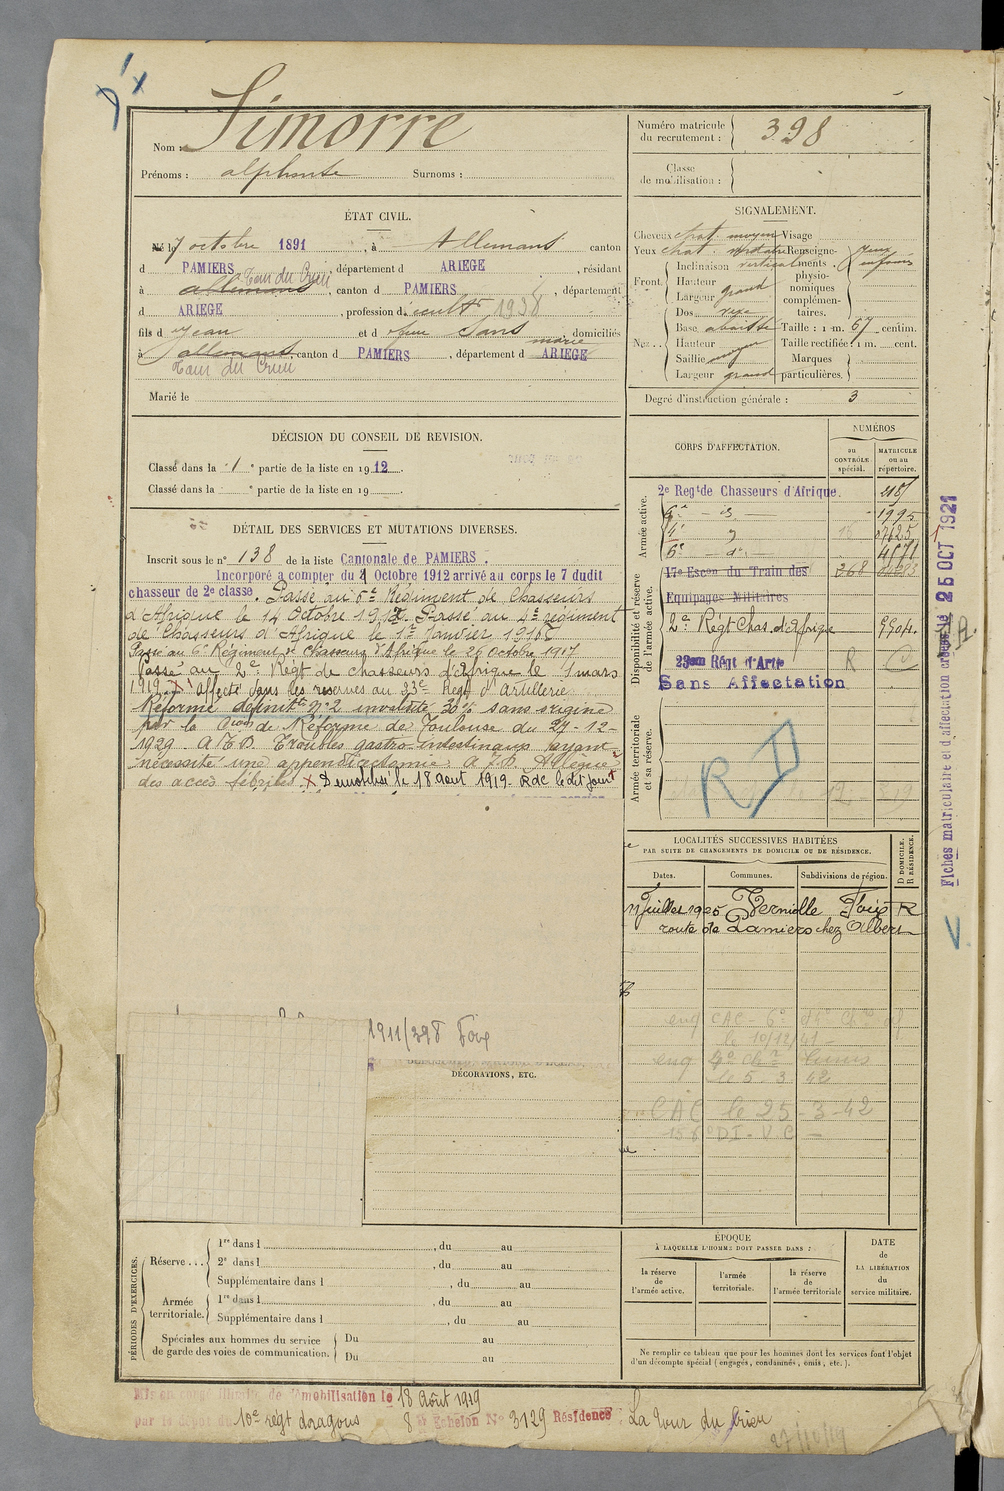 Nom : Simorre
Prénoms : alphonse Surnoms :
ÉTAT CIVIL.
Né le 7 octobre 1891, à Allemans canton
d PAMIERS, département d ARIEGE, résidant
Tour du Crieu
à allemans, canton d PAMIERS, département
d ARIEGE, profession d cultr 1938
fils d Jean et d Sans domiciliés
marie
à allemans, canton d PAMIERS, département d ARIEGE
Tour du Crieu
Marié le
DÉCISION DU CONSEIL DE REVISION.
Classé dans la 1e partie de la liste en 1912.
Classé dans la e partie de la liste en 19
DÉTAIL DES SERVICES ET MUTATIONS DIVERSES.
Inscrit sous le n° 138 de la liste Cantonale de PAMIERS.
Incorporé à compter du Octobre 1912 arrivé au corps le 7 dudit
chasseur de 2e classe. Passé au 5e Régiment de Chasseurs
d'Afrique le 14 Octobre 1912. Passé au 4e régiment
de Chasseurs d'Afrique le 1er Janvier 1916
Passé au 6e Régiment de chasseurs d'Afrique le 26 octobre 1917
Passé au 2e Régt de chasseurs d'Afrique le 1 mars
1919. X Affecté dans les réserves au 23e Regt d'Artillerie
Réformé définitt n°2 invalidité 30% sans origine
par la Cion de Réforme de Toulouse du 27-12-
1929. A.T.D. Troubles gastro-intestinaux ayant
nécessité une appendicectomie. A.T.D. Allègue
des accès fébriles. X Démobilisé le 18 aout 1919. RdC le dit jour
1911/398 Foix
DÉCORATIONS, ETC.
PÉRIODES D'EXERCICES.
Réserve ...
1re dans l , du au
2e dans l , du au
Supplémentaire dans l , du au
Armée territoriale.
1re dans l , du au
Supplémentaire dans l , du au
Spéciales aux hommes du service
de garde des voies de communication.
Du au
Du au
Mis en congé illimité de démobilisation le 18 Août 1919
par le dépôt du 10e régt dragons 8e Echelon N° 3129 Résidence La Tour du Crieu
27/10/19
Numéro matricule
du recrutement : 398
Classe
de mobilisation :
SIGNALEMENT.
Cheveux chat. moyen Visage
Yeux chat. Renseignements physionomiques complémentaires. Yeux
Front. Inclinaison vertical
Hauteur
Largeur grand
Nez..
Dos vexe
Base abaissée Taille : 1 m. 67 centim.
Hauteur Taille rectifiée : 1 m. cent.
Saillie moyen Marques
Largeur grand particulières.
Degré d'instruction générale : 3
CORPS D'AFFECTATION.
NUMÉROS
au
CONTRÔLE
spécial.
MATRICULE
ou au
répertoire.
Armée active.
2e Regt de Chasseurs d'Afrique.
5e - id - 1995
4e
6e - do -
Disponibilité et réserve
de l'armée active.
17e Escon du Train des 368
Equipages Militaires
2e Régt Chas. d'Afrique
23eme Régt d'Artie R
Sans Affectation
Armée territoriale
et sa réserve.
RD
LOCALITÉS SUCCESSIVES HABITÉES
PAR SUITE DE CHANGEMENTS DE DOMICILE OU DE RÉSIDENCE.
Dates. Communes. Subdivisions de région. D DOMICILE. R RÉSIDENCE.
11 Juillet 1925 Verniolle Foix R
route de Pamiers chez Albert
eng CAC - 6e
le 10/12/41 -
eng
le 5-3 42
CAC le 25-3-42
DI - V C -
ÉPOQUE
À LAQUELLE L'HOMME DOIT PASSER DANS :
la réserve
de
l'armée active.
l'armée
territoriale.
la réserve
de
l'armée territoriale
DATE
de
LA LIBÉRATION
du
service militaire.
Ne remplir ce tableau que pour les hommes dont les services font l'objet
d'un décompte spécial (engagés, condamnés, omis, etc.).
Fiches matriculaire et d'affectation créées le 25 OCT 1921